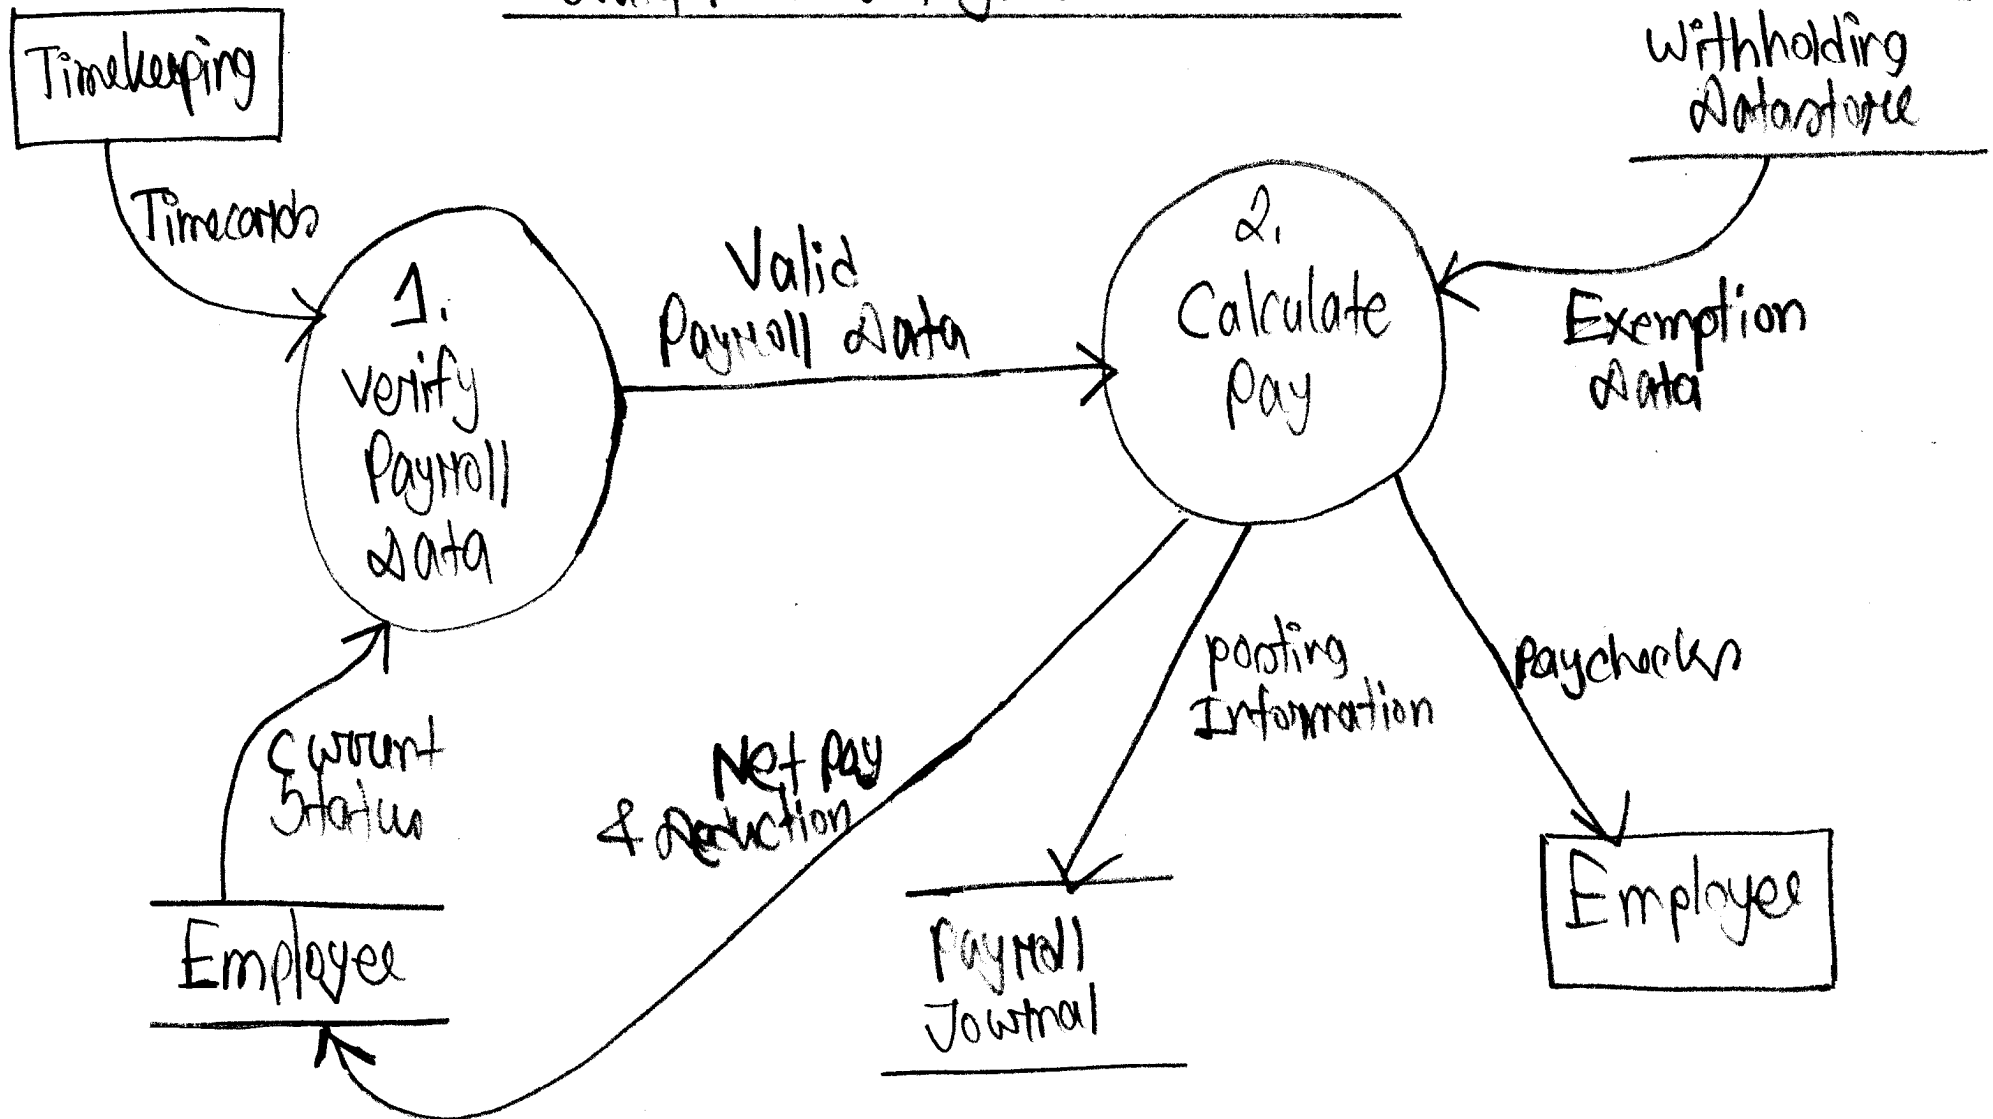 Timekeeping
Withholding
Datastore
Timecards
1.
Verify
Payroll
Data
Valid
Payroll Data
2.
Calculate
Pay
Exemption
Data
Current
Status
Net Pay
& Deduction
Posting
Information
Paychecks
Employee
Payroll
Journal
Employee